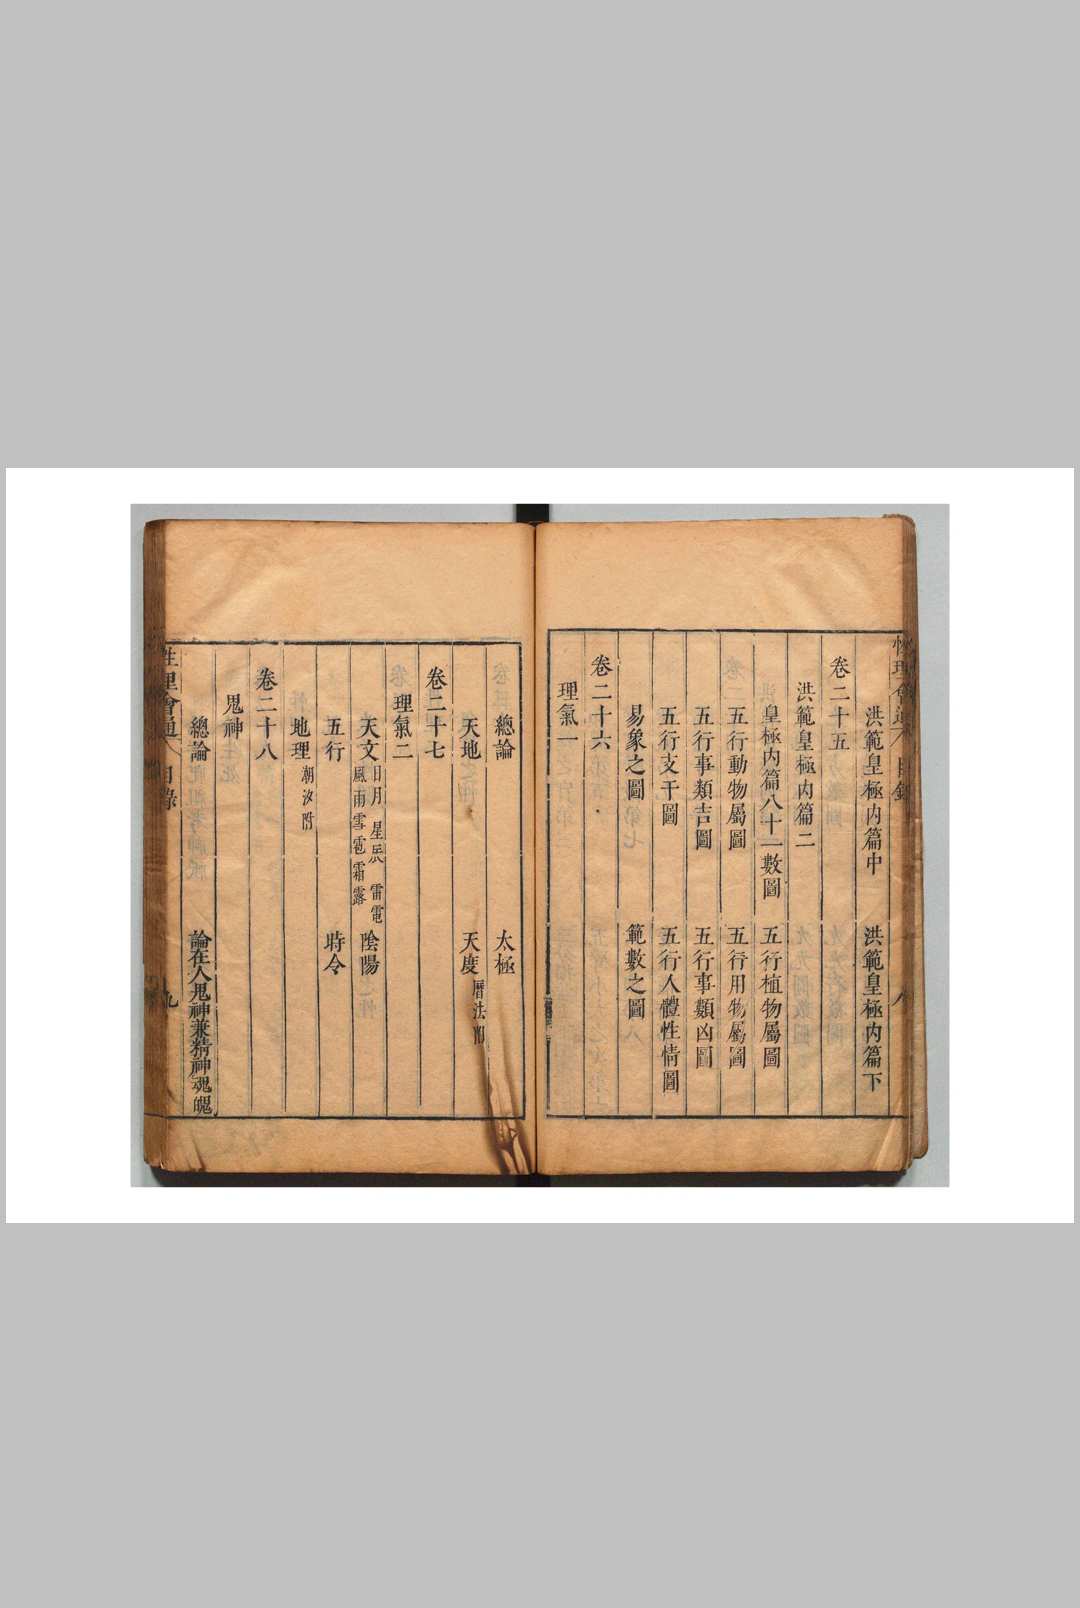 性理會通 目錄 八
洪範皇極内篇中 洪範皇極内篇下
卷二十五
洪範皇極内篇二
皇極内篇八十一數圖 五行植物屬圖
五行動物屬圖 五行用物屬圖
五行事類吉圖 五行事類凶圖
五行支干圖 五行人體性情圖
易象之圖 範數之圖
卷二十六
理氣一
總論 太極
天地 天度 曆法附
卷二十七
理氣二
天文 日月 星辰 雷電 風雨雪雹霜露 陰陽
五行 時令
地理 潮汐附
卷二十八
鬼神
總論 論在人鬼神兼精神魂魄
性理會通 目錄 九